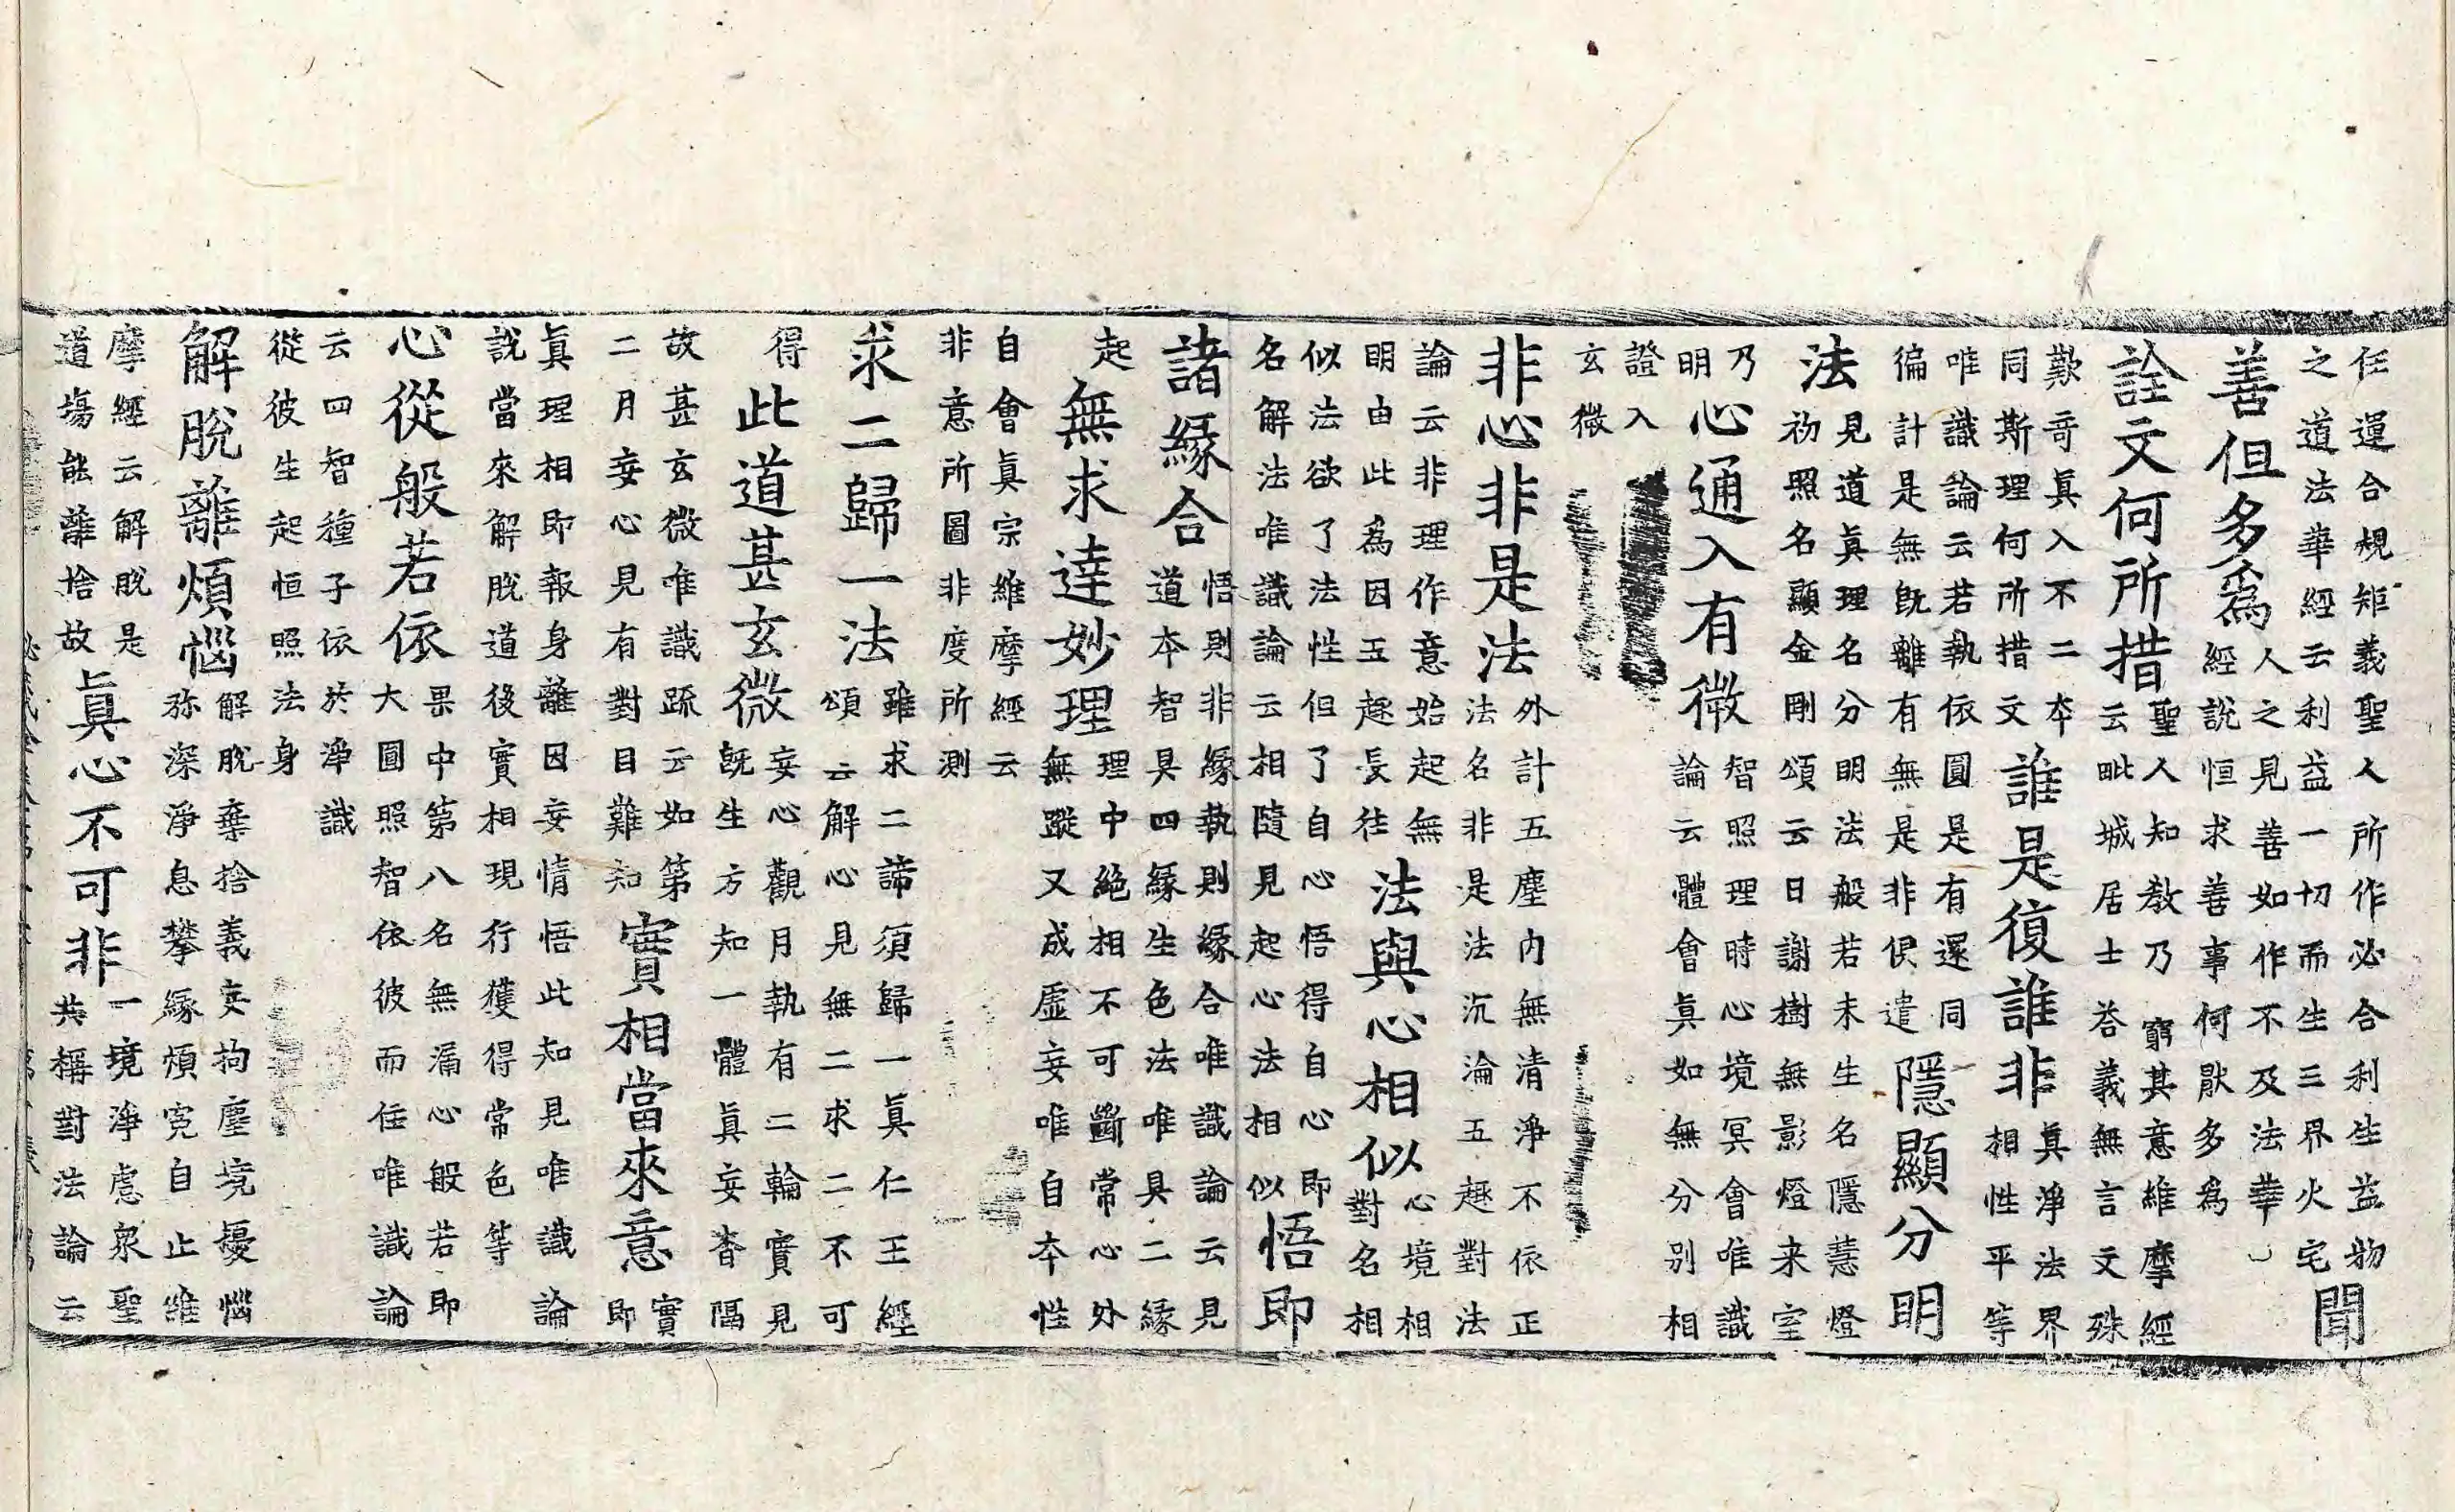 任運合規矩義聖人所作必合利生益物
之道法華經云利益一切而生三界火宅
聞
善但多爲
人之見善如作不及法華
經說恒求善事何猒多爲
詮文何所措
聖人知教乃窮其意維摩經
云毗城居士荅義無言文殊
歎奇眞入不二本
同斯理何所措文
誰是復誰非
眞淨法界
相性平等
唯識論云若執依圓是有還同
徧計是無旣離有無是非俱遣
隱顯分明
法
見道眞理名分明法般若未生名隱慧燈
初照名顯金剛頌云日謝樹無影燈来室
乃
明
心通入有微
智照理時心境冥會唯識
論云體會眞如無分別相
證入
玄微
非心非是法
外計五塵内無清淨不依正
法名非是法沉淪五趣對法
論云非理作意始起無
明由此爲因五趣長往
法與心相似
心境相
對名相
似法欲了法性但了自心悟得自心即
名解法唯識論云相隨見起心法相似
悟即
諸緣合
悟則非緣執則緣合唯識論云見
道本智具四緣生色法唯具二緣
起
無求達妙理
理中絶相不可斷常心外
無蹤又成虛妄唯自本性
自會眞宗維摩經云
非意所圖非度所測
求二歸一法
雖求二諦須歸一眞仁王經
頌云解心見無二求二不可
得
此道甚玄微
妄心觀月執有二輪實見
旣生方知一體眞妄杳隔
故甚玄微唯識疏云如第
二月妄心見有對目難知
實相當來意
實
即
眞理相即報身離因妄情悟此知見唯識論
說當來解脫道後實相現行獲得常色等
心從般若依
果中第八名無漏心般若即
大圓照智依彼而住唯識論
云四智種子依於淨識
從彼生起恒照法身
解脫離煩惱
解脫棄捨義妄拘塵境擾惱
弥深淨息攀緣煩寃自止維
摩經云解脫是
道塲能離捨故
眞心不可非
一境淨慮衆聖
共稱對法論云